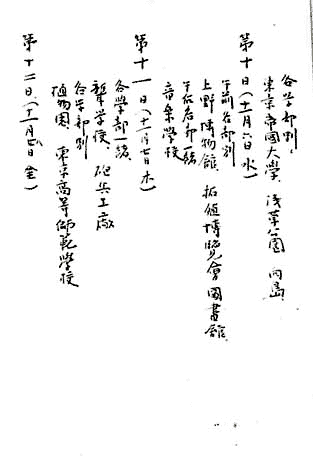 各学部別、
東京帝國大學、浅草公園 向島
第十日(十一月六日水)
午前各部別
上野博物館、拓殖博覧會圖書館、
午后各部一緒
音楽學校
第十一日(十一月七日木)
各學部一緒
聾学校、砲兵工廠
各学部別
植物園、東京高等師範学校
第十二日、(十一月八日 金)